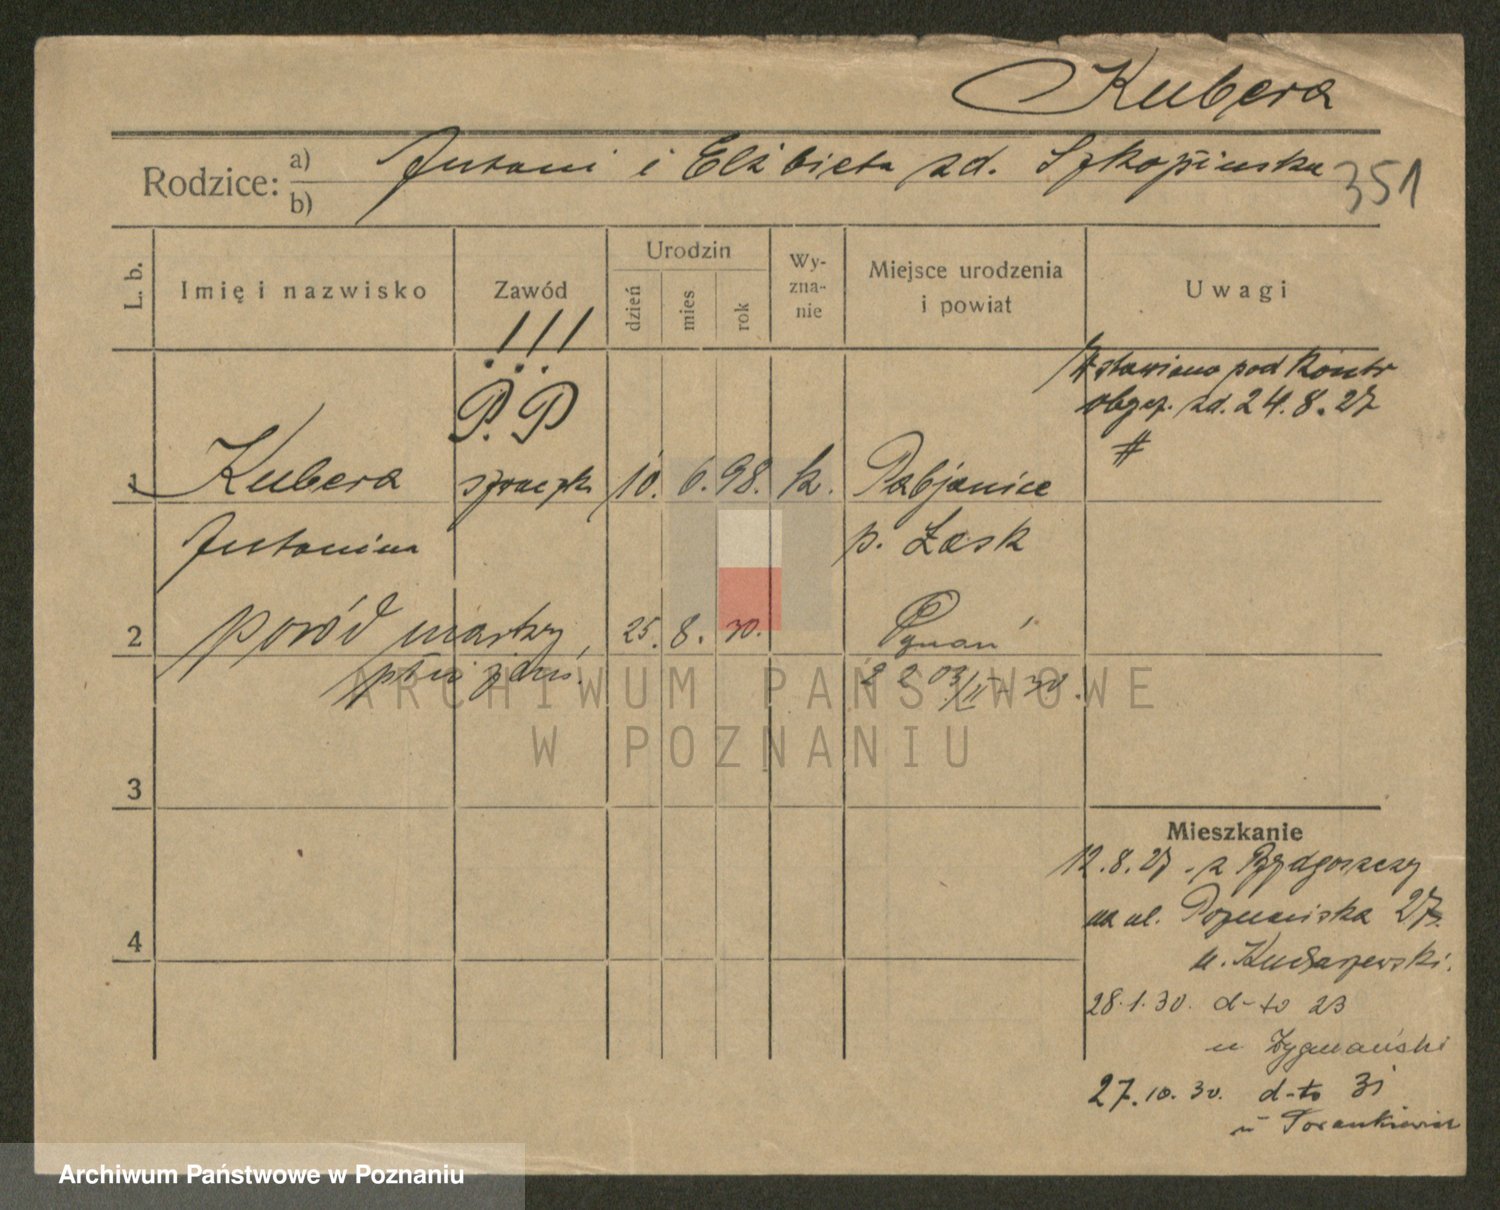 Kubera
Rodzice: a) Antoni i Elżbieta zd. Szkopińska
b)
351
L. b. Imię i nazwisko Zawód Urodzin dzień mies rok Wy-zna-nie Miejsce urodzenia i powiat Uwagi
!!!
P.P
Wstawiono pod kontr
obycz. zd. 24.8.27
#
1 Kubera 10. 6. 98. k. Pabjanice
Antonina p. Łask
2 poród martwy 25. 8. 30. Poznań
płci żeńs.
3
4
Mieszkanie
12.8.27 - z Bydgoszczy
na ul. Poznańska 27
u.
28.1.30. d-to 23
u Zygmański
27.10.30. d-to 31
u
ARCHIWUM PAŃSTWOWE
W POZNANIU
Archiwum Państwowe w Poznaniu